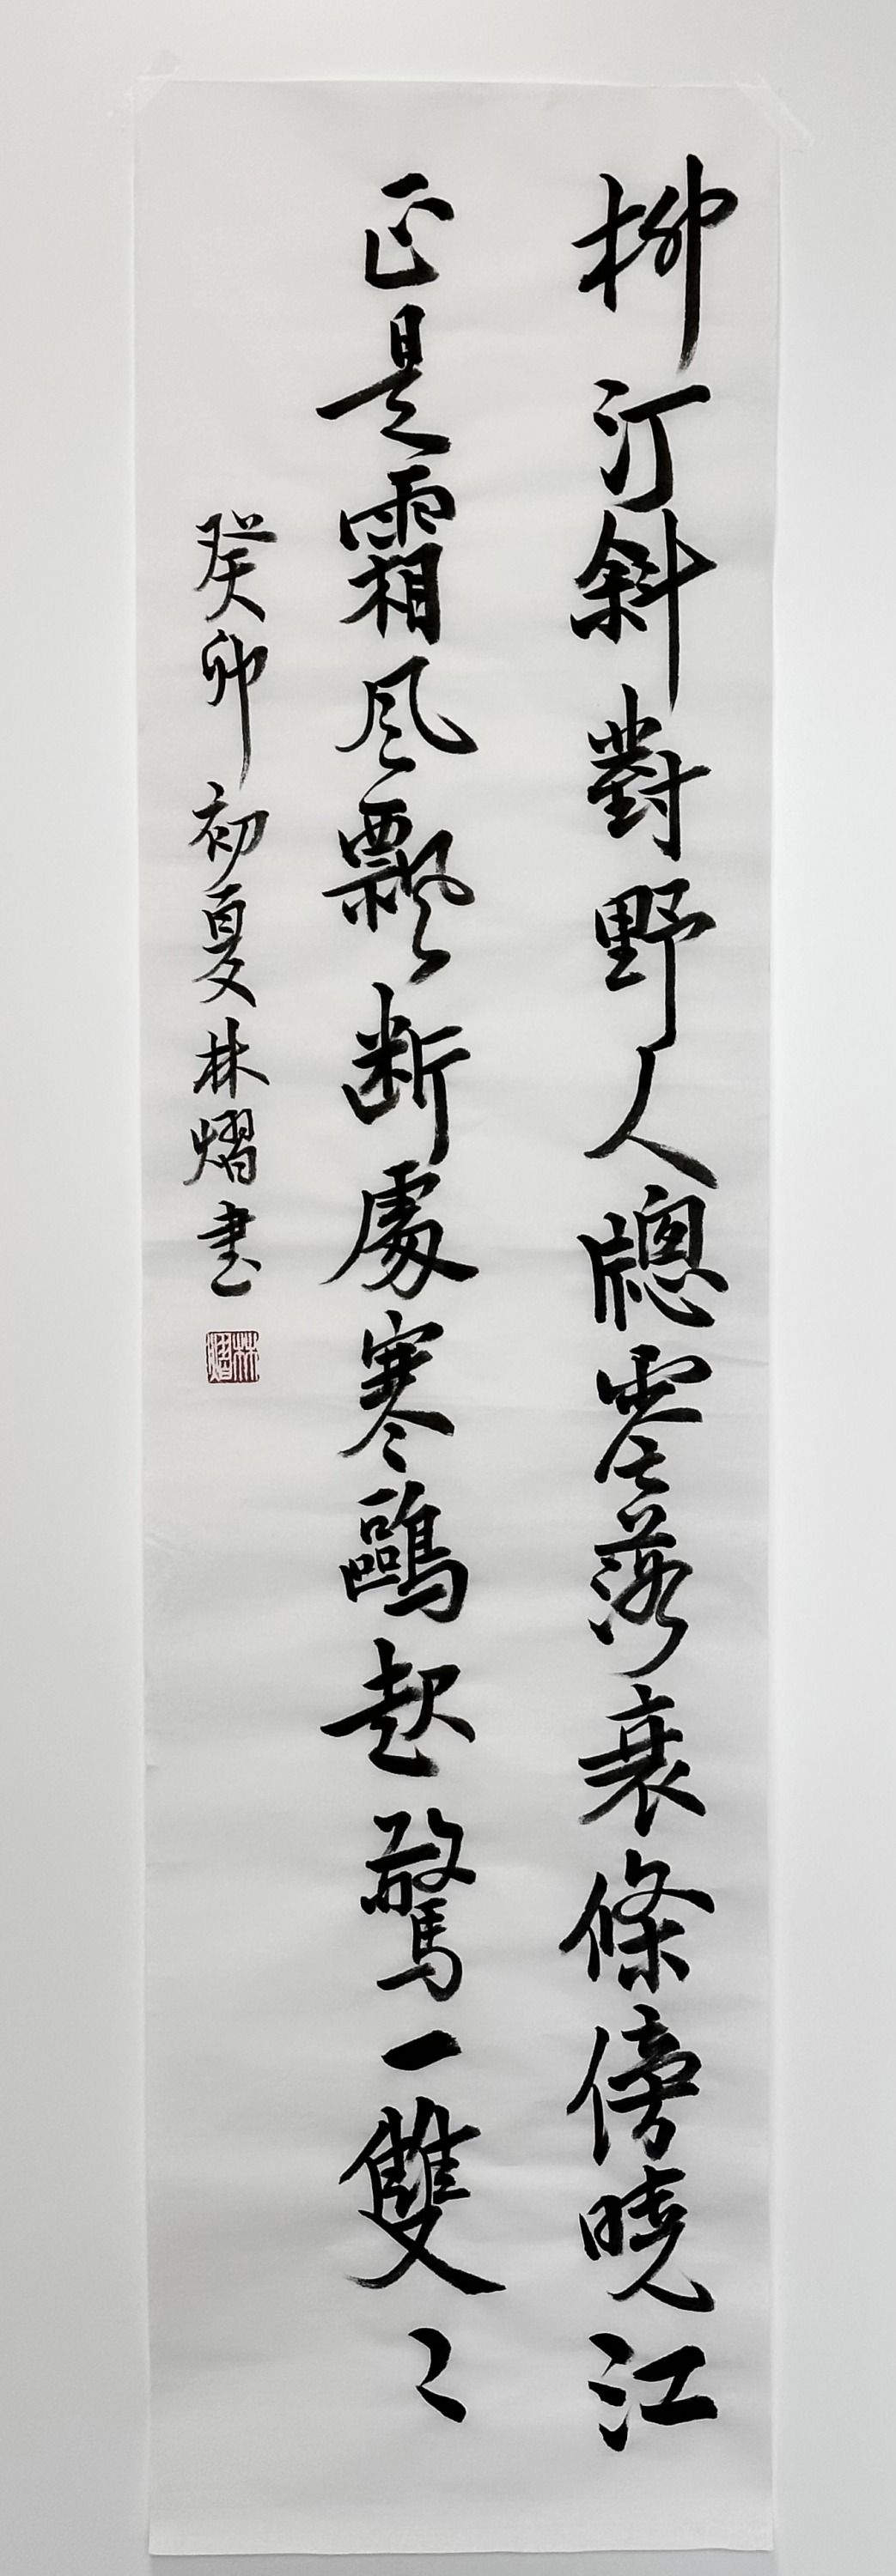 柳汀斜對野人牕零落衰條傍曉江
正是霜風飄断處寒鷗起驚一雙〻
癸卯初夏林熠书
林熠